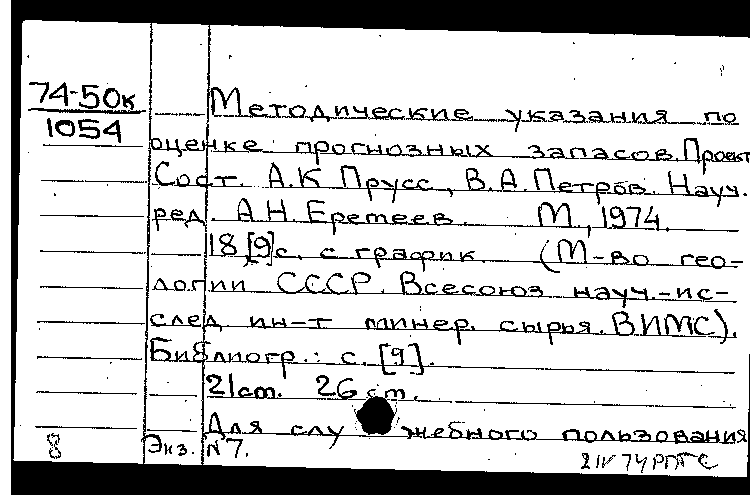 74-50к
1054
Методические указания по
оценке прогнозных запасов. Проект
Сост. А.К Прусс, В.А. Петров. Науч.
ред. А.Н. Еремеев. М., 1974.
18 [9] с. с график. (М-во гео-
логии СССР. Всесоюз науч.-ис-
след ин-т минер. сырья. ВИМС).
Библиогр.: с. [9].
21 ст. 26 ст.
Для служебного пользования
8 Экз. N 7.